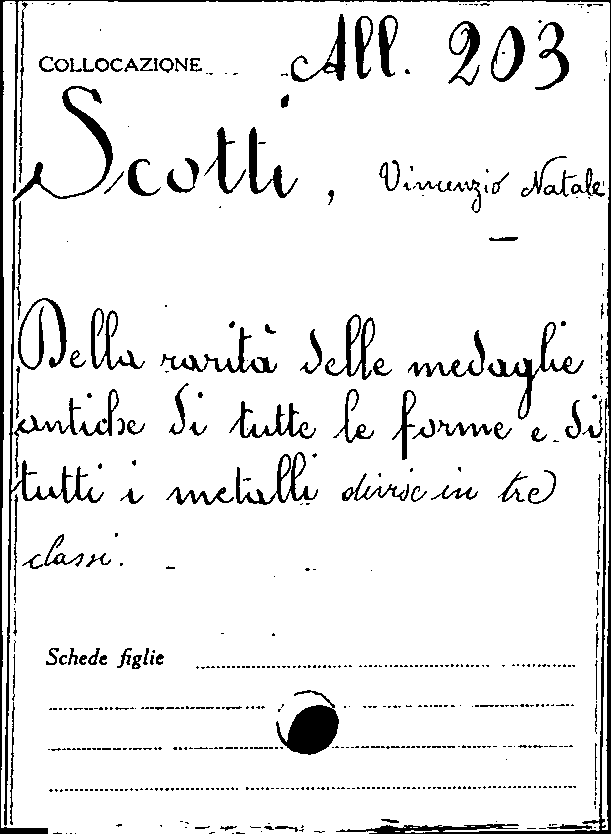 COLLOCAZIONE All. 203
Scotti, Vincenzio Natale
Della rarità delle medaglie
antiche di tutte le forme e di
tutti i metalli divise in tre
classi.
Schede figlie